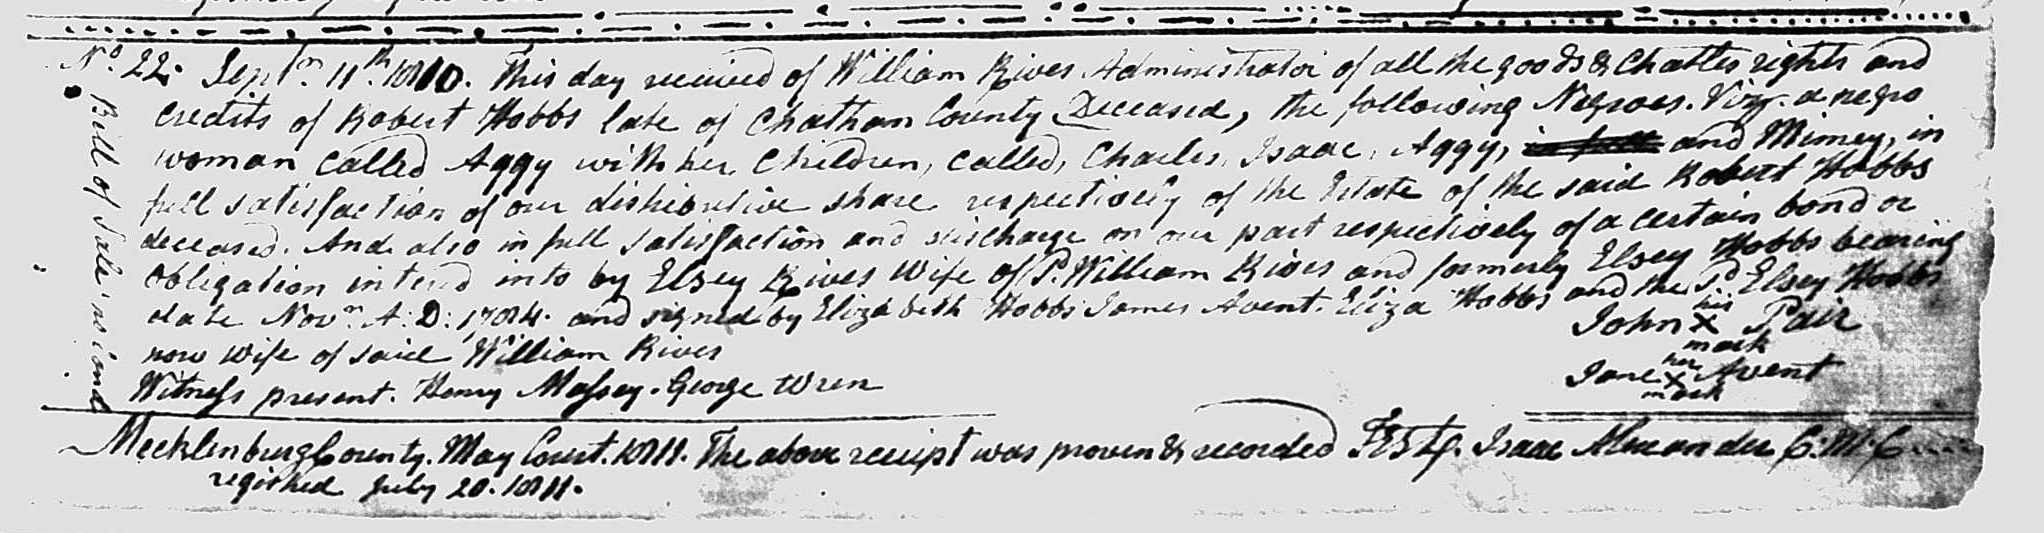 No. 22. Septm 11th 1810. This day received of William Rives Administrator of all the goods & Chattles rights and
Credits of Robert Hobbs late of Chatham County Deceased, the following Negroes. Viz. a negro
woman called Aggy with her Children, called, Charles, Isaac, Aggy, in full and Mimey, in
full satisfaction of our distributive share respectively of the Estate of the said Robert Hobbs
deceased. And also in full satisfaction and discharge on our part respectively of a certain bond or
obligation intered into by Elsey Rives Wife of Sd. William Rives and formerly Elsey Hobbs bearing
date Novm. A: D: 1784. and signed by Elizabeth Hobbs James Avent. Eliza Hobbs and the Sd Elsey Hobbs
now wife of said William Rives
his
John X Pair
mark
Witness present. Henry Massey. George Wren
her
Jane X Avent
mark
Bill of Sale
Mecklenburg County. May Court. 1811. The above receipt was proven & recorded Test. Isaac Alexander C: M: C
registred July 20. 1811.